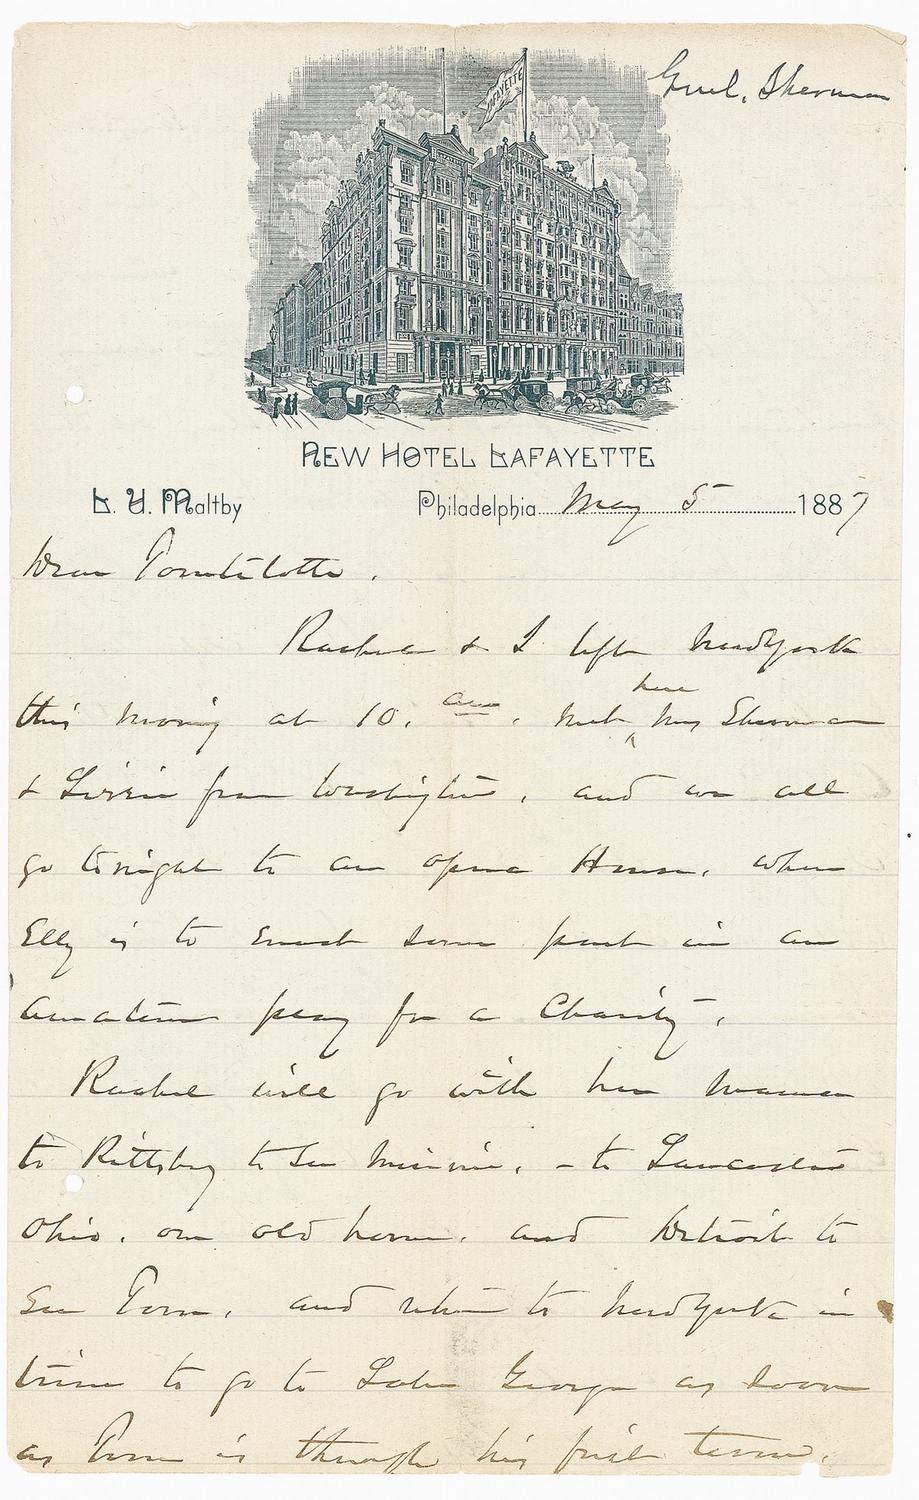 Genl. Sherman
LAFAYETTE
NEW HOTEL LAFAYETTE
L. U. Maltby Philadelphia May 5 1887
Dear
Rachel & I left New York
here
this morning at 10. am. met Mrs Sherman
& Lizzie from Washington, and we all
go tonight to an opera House, when
Elly is to enact some part in an
amateur play for a Charity.
Rachel will go with her mamma
to Pittsburg to see Minnie, - to Lancaster
Ohio. our old home. and Detroit to
see Tom, and return to New York in
time to go to Lake George as soon
as Tom is through his first term.